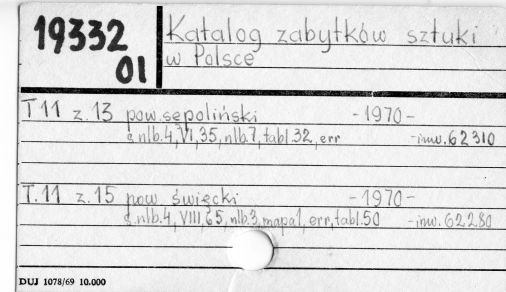 19332
01
Katalog zabytków sztuki
w Polsce
T 11 z. 13 pow. sępoliński -1970-
s. nlb. 4, VI, 35, nlb. 7, tabl. 32, err -inw. 62310
T. 11 z. 15 pow świecki -1970-
s. nlb. 4, VIII, 65, nlb. 3, mapa 1, err, tabl. 50 -inw. 62280
DUJ 1078/69 10.000